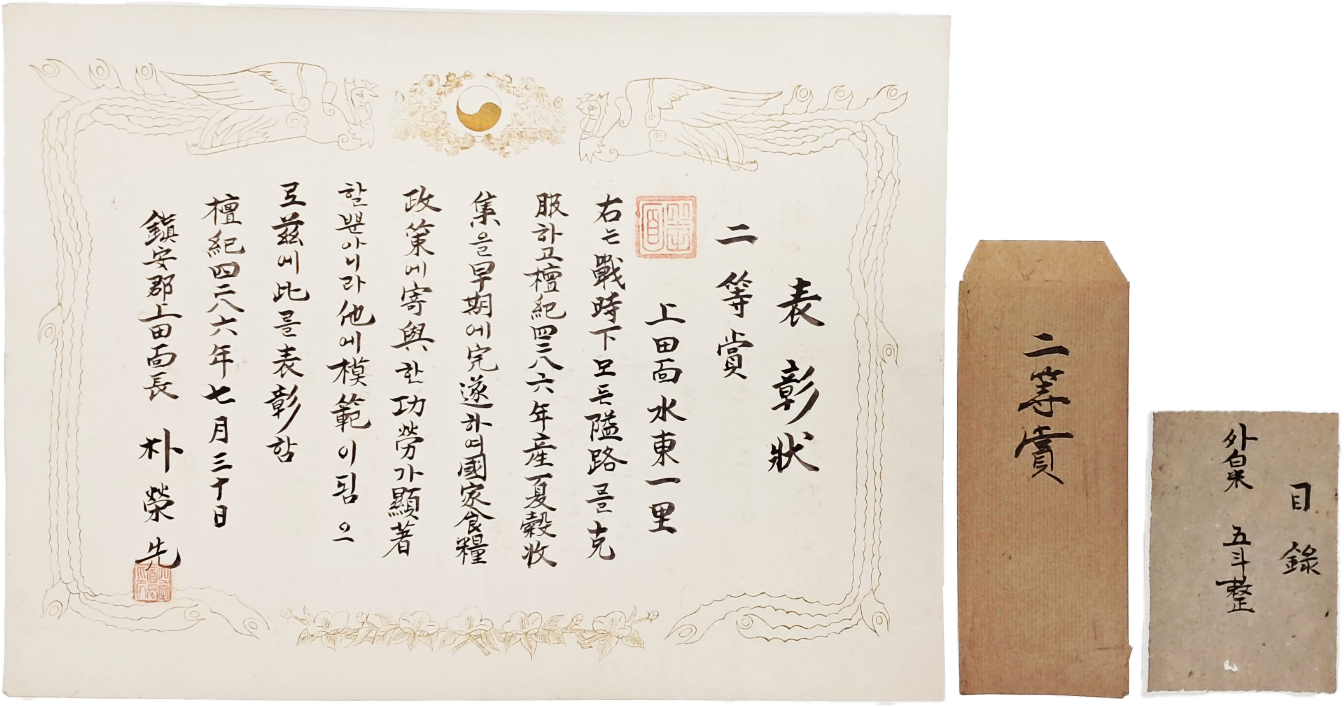 表彰狀
二等賞
上田面水東一里
右는戰時下모든隘路를克
服하고檀紀四二八六年産夏穀收
集을早期에完遂하며國家食糧
政策에寄與한功勞가顯著
할뿐아니라他에模範이됨으
로玆에此를表彰함
檀紀四二八六年七月三十日
鎭安郡上田面長 朴榮先
二等賞
目錄
外白米 五斗整